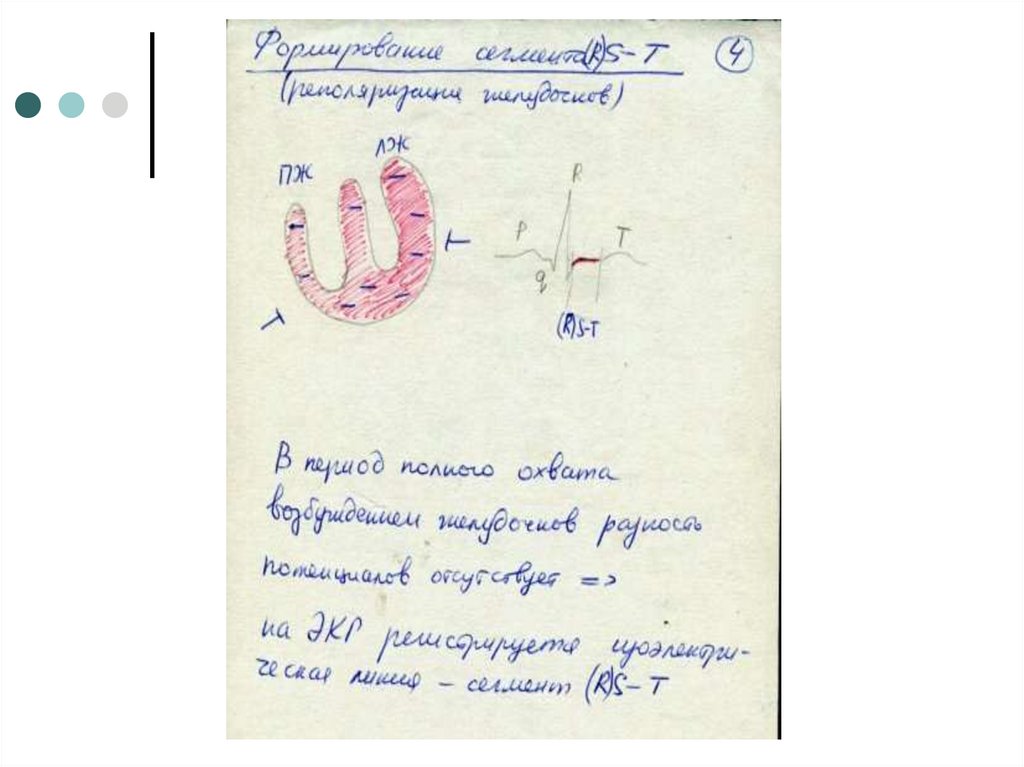 Формирование сегмента(R)S-T ④
(реполяризация желудочков)
ЛЖ
ПЖ
R
P
T
q
(R)S-T
В период полного охвата
возбуждением желудочков разность
потенциалов отсутствует =>
на ЭКГ регистрируется изоэлектри-
ческая линия – сегмент (R)S-T